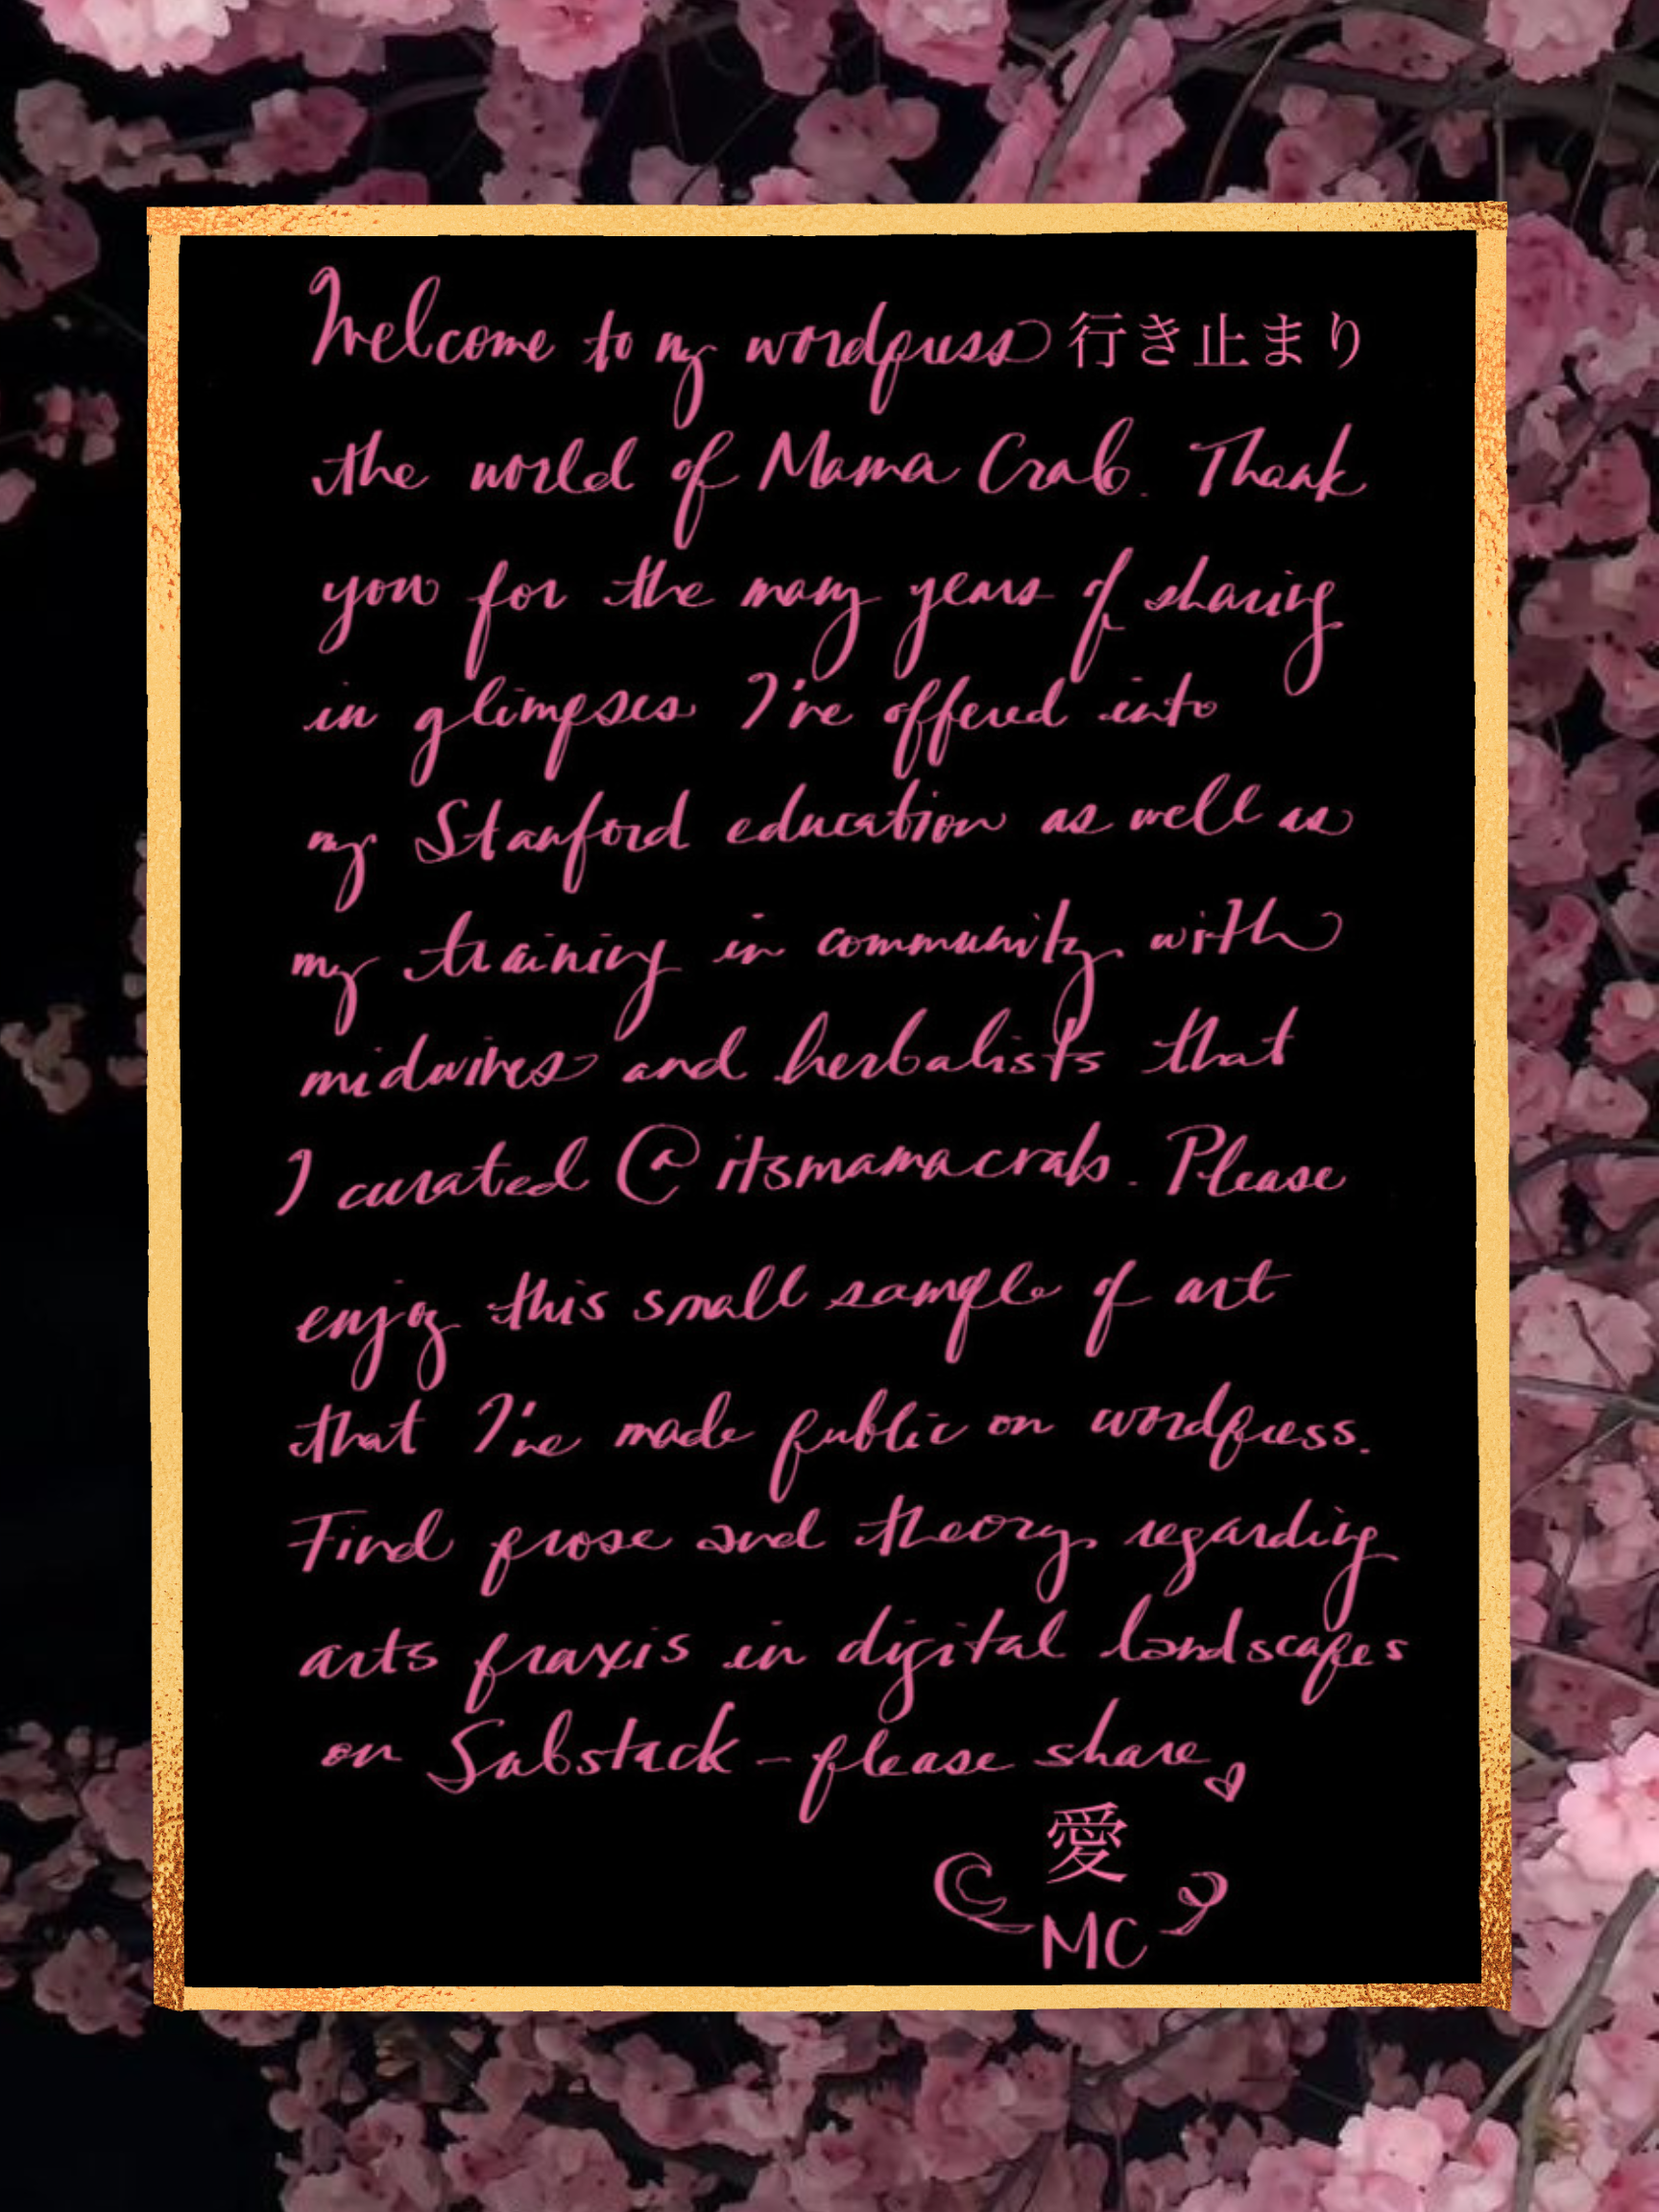 Welcome to my wordpress 行き止まり
the world of Mama Crab. Thank
you for the many years of sharing
in glimpses I've offered into
my Stanford education as well as
my training in community with
midwives and herbalists that
I curated @itsmamacrab. Please
enjoy this small sample of art
that I've made public on wordpress.
Find prose and theory regarding
arts praxis in digital landscapes
on Substack - please share
愛
MC